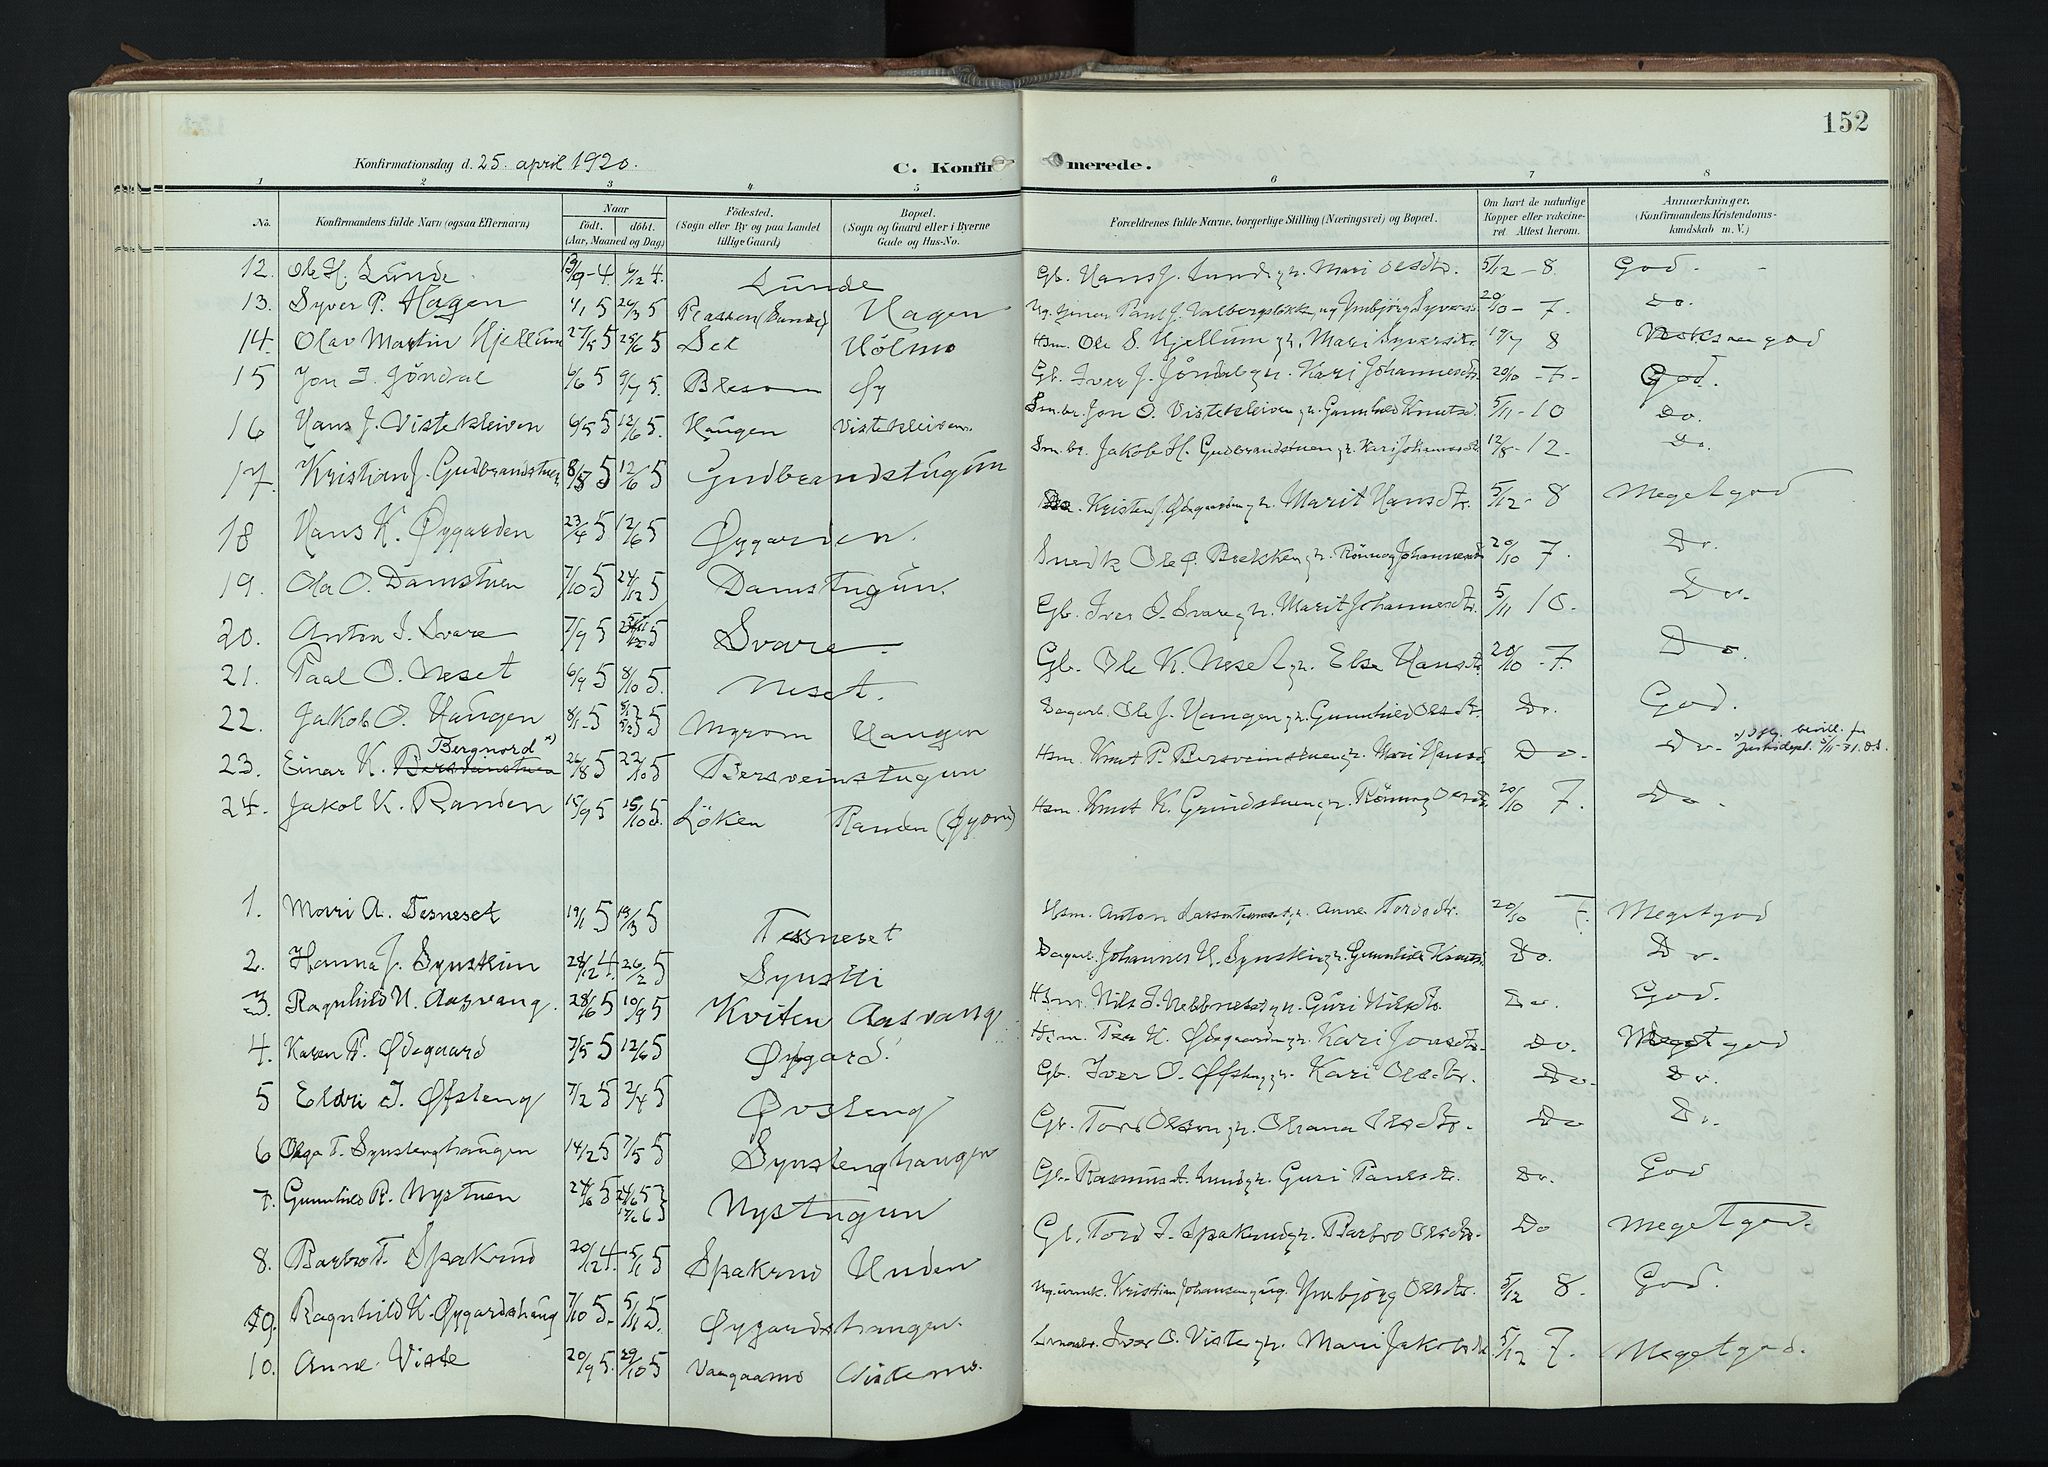 152
Konfirmationsdag d. 25. april 1920.
C. Konfirmerede.
1 2 3 4 5 6 7 8
No. Konfirmandens fulde Navn (ogsaa Efternavn) Naar født. døbt. (Aar, Maaned og Dag) Fødested. (Sogn eller By og paa Landet tillige Gaard) Bopæl. (Sogn og Gaard eller i Byerne Gade og Hus-No. Forældrenes fulde Navne, borgerlige Stilling (Næringsvei) og Bopæl. Om havt de naturlige Kopper eller vaccineret. Attest herom. Anmærkninger. (Konfirmandens Kristendomskundskab m. V.)
12. Ole H. Lunde 4. 4. Lunde Gb. Hans J. Lunde Mari Olsdtr. 5/12 - 8. God.
13. Syver P. Hagen 5 5 Hagen 20/10 - 7. Do.
14. Olav Martin Hjellum 27/5 5 25/6 5 Sel Holmo Hsm. Ole S. Hjellum Mari Syversdtr. 8 god
15 Jon I. Jøndal 6/6 5 9/7 5. Blessom Øy Gb. Iver J. Jøndal Kari Johannesdtr. 20/10 - 7 - God.
16 Hans J. Vistekleiven 9/5 5 12/6 5. Haugen Vistekleiven. Sm.br. Jon O. Vistekleiven Gunhild Knutsd. 5/11 - 10 Do.
17. Kristian J. Gudbrandstuen 5 12/6 5 Gudbrandstugun Sm.br. Jakob H. Gudbrandstuen Kari Johannesdtr. 12/8 - 12. Do.
18 Hans K. Øygarden 23/4 5 12/6 5 Øygarden. Kristen J. Marit Hansdtr. 5/12 - 8 Megetgod
19. Ola O. Damstuen 7/10 5 24/12 5 Damstugun. Snedk Ole Brekken Rønnog Johannesdtr 20/10 7. Do.
20. Anton I. Svare 7/9 5 5 Svare. Gb. Iver O. Svare Marit Johannesdtr. 5/11 10. Do.
21. Paal O. Neset 6/9 5 8/10 5. Neset. Gb. Ole K. Neset Else Hansdtr. 20/10 - 7. Do.
22. Jakob O. Haugen 8/1 5 5 Myrom Haugen Dagarb. Ole J. Haugen Gunnhild Olsdtr. Do. God.
23. Einar K. Bersveinstuen Bergnord x) 26/8 5 22/10 5 Bersveinstugun Hsm. Knut P. Bersveinstuen Mari Hansd. Do. Do. bevill. fra Justisdept.
24. Jakob K. Randen 15/9 5 15/10 5. Løken Randen (Øyom) Hsm. Knut K. Grindstuen Rønnog Olsdtr 20/10 7. Do.
1. Mari A. Tesneset 19/1 5 19/3 5 Tesneset Hsm. Anton Larsen Tesneset Anne Tordsdtr. 20/10 7. Megetgod
2. Hanna J. Synstlien 28/12 4. 26/2 5 Synstli Dagarb. Johannes H. Synstlien Gunnhild Knutsd. Do. Do.
3. Ragnhild N. Aasvang. 28/6 5 10/9 5 Kviten Aasvang Hsm. Nils I. Guri Nilsdtr. Do. God.
4. Karen P. Ødegaard 7/5 5 12/6 5 Øygard. Hsm. Per K. Ødegaarden Kari Jonsdtr. Do. Megetgod
5 Eldri I. Øfsteng 7/2 5 2/4 5 Øvsteng Gb. Iver O. Øfsteng Kari Olsdtr. Do. Do.
6 Olga T. Synstenghaugen 14/2 5 7/5 5 Synstenghaugen Gb. Tord Olsen Olsdtr. Do Do.
7. Gunnhild R. Nystuen 24/6 5 5 Nystugun Gb. Rasmus Guri Paulsdtr. Do. God
8. Barbro T. Spakrud 20/12 4. 5/1 5 Spakrud Uuden Gb. Tord I. Spakrud Barbro Olsdtr. Do Megetgod.
9. Ragnhild K. Øygardshaug 7/10 5. 5/11 5. Øygardshaugen. Kristian Johansen Ymbjørg Olsdtr. 5/12 8. God.
10. Anne Viste 20/9 5. 29/10 5 Vaagaamo Vistemo. Iver O. Viste Mari Jakobsd. 5/12 7. Megetgod.